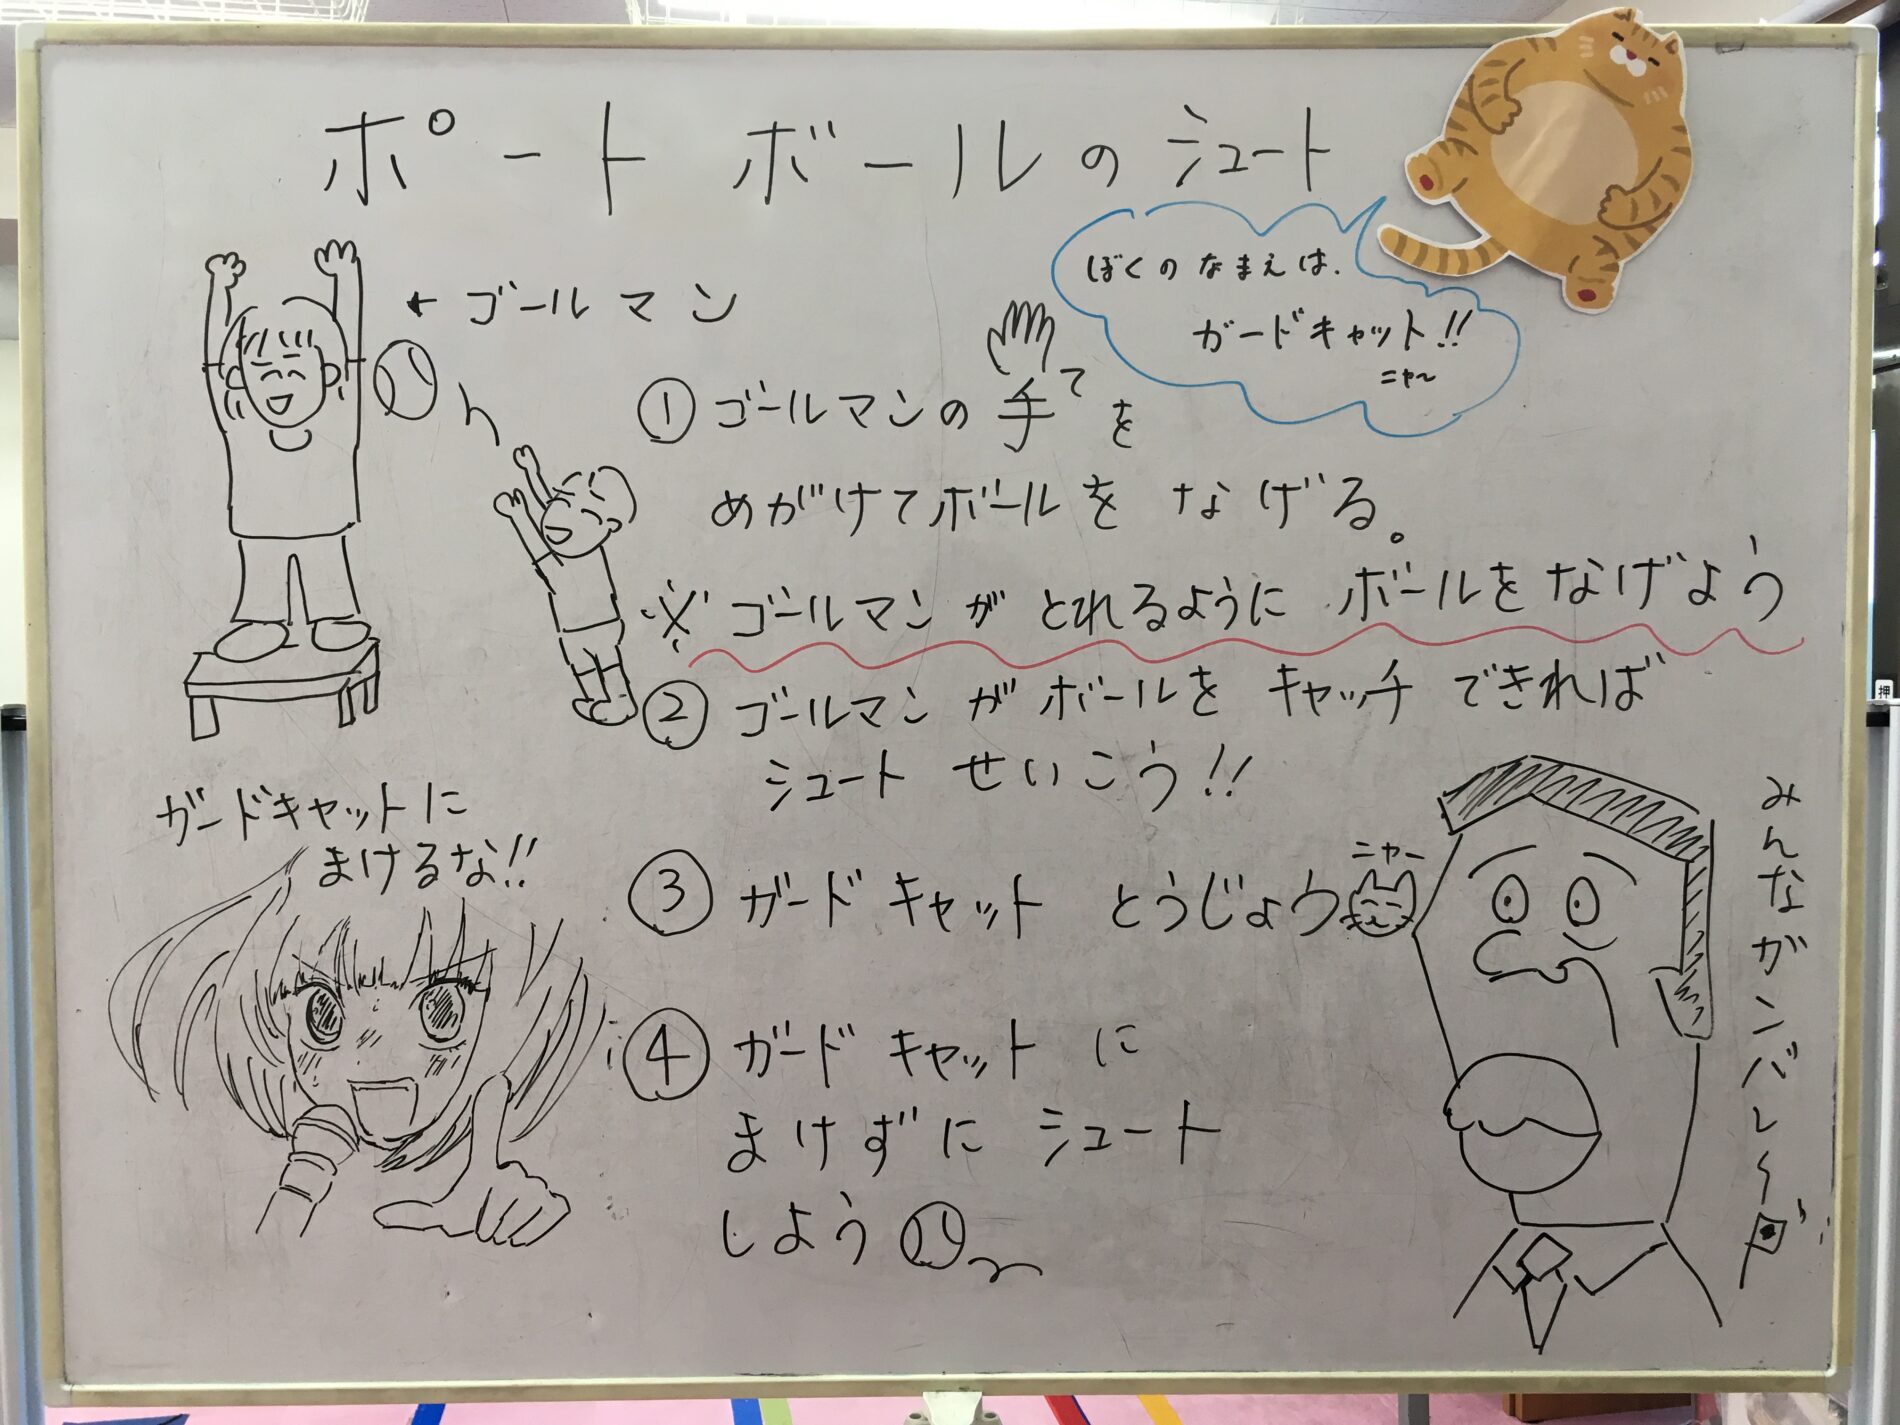 ポートボールのシュート
ぼくのなまえは、
ガードキャット!!
ニャ〜
←ゴールマン
①ゴールマンの手てを
めがけてボールをなげる。
※ゴールマンがとれるようにボールをなげよう
②ゴールマンがボールをキャッチできれば
シュートせいこう!!
ガードキャットに
まけるな!!
③ガードキャットとうじょう
ニャー
④ガードキャットに
まけずにシュート
しよう
みんなガンバレ〜
押